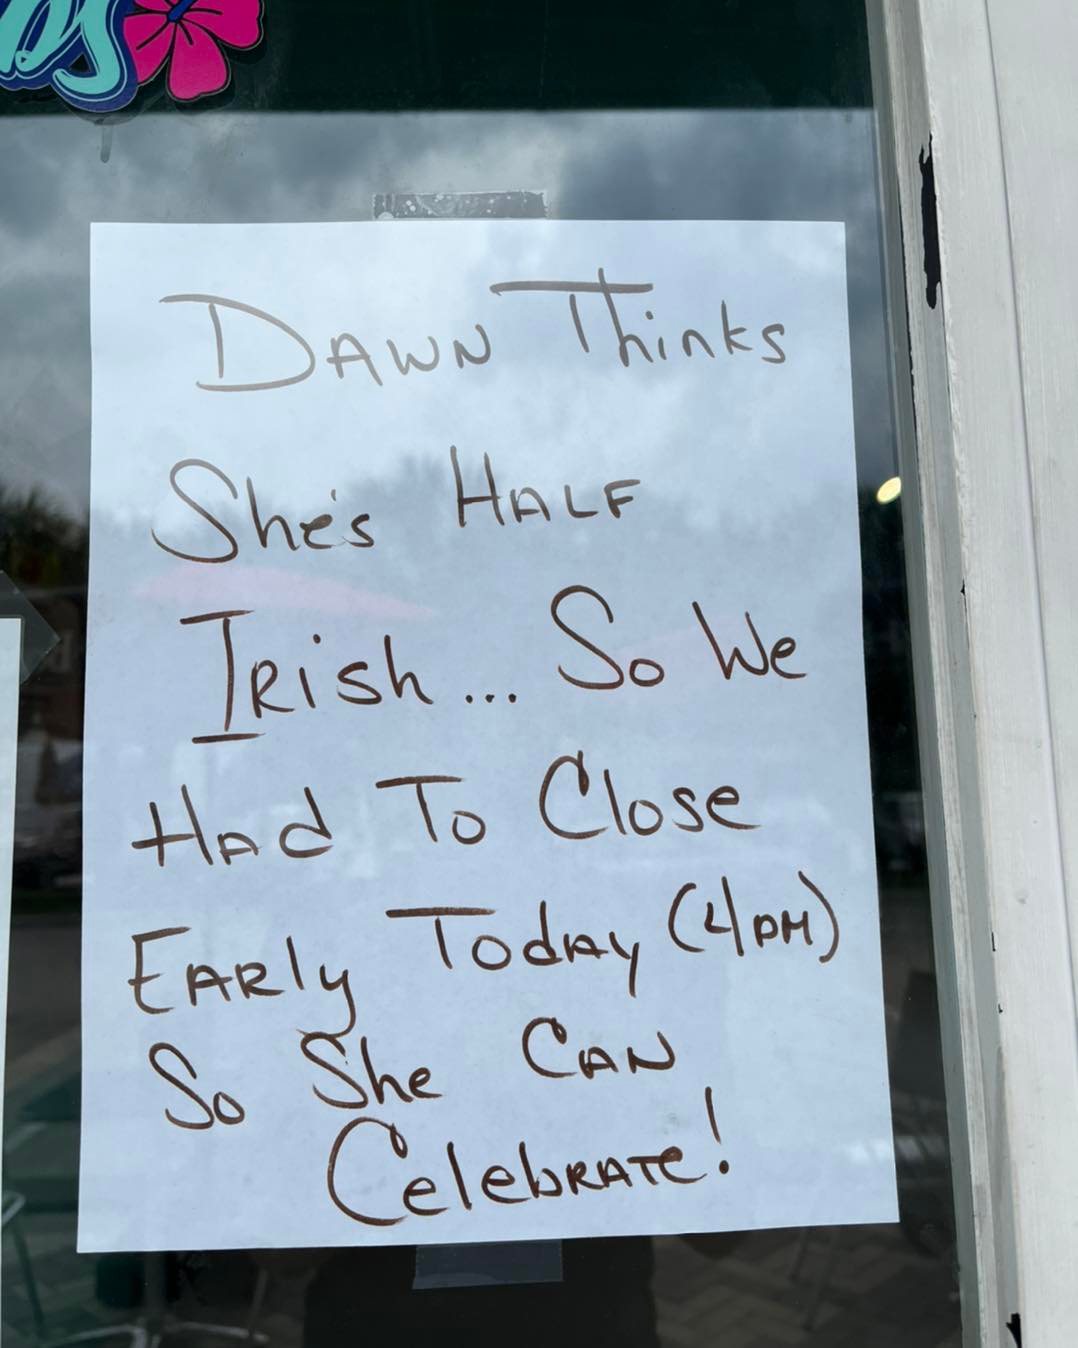 Dawn Thinks
She's Half
Irish... So We
Had To Close
Early Today (4pm)
So She Can
Celebrate!